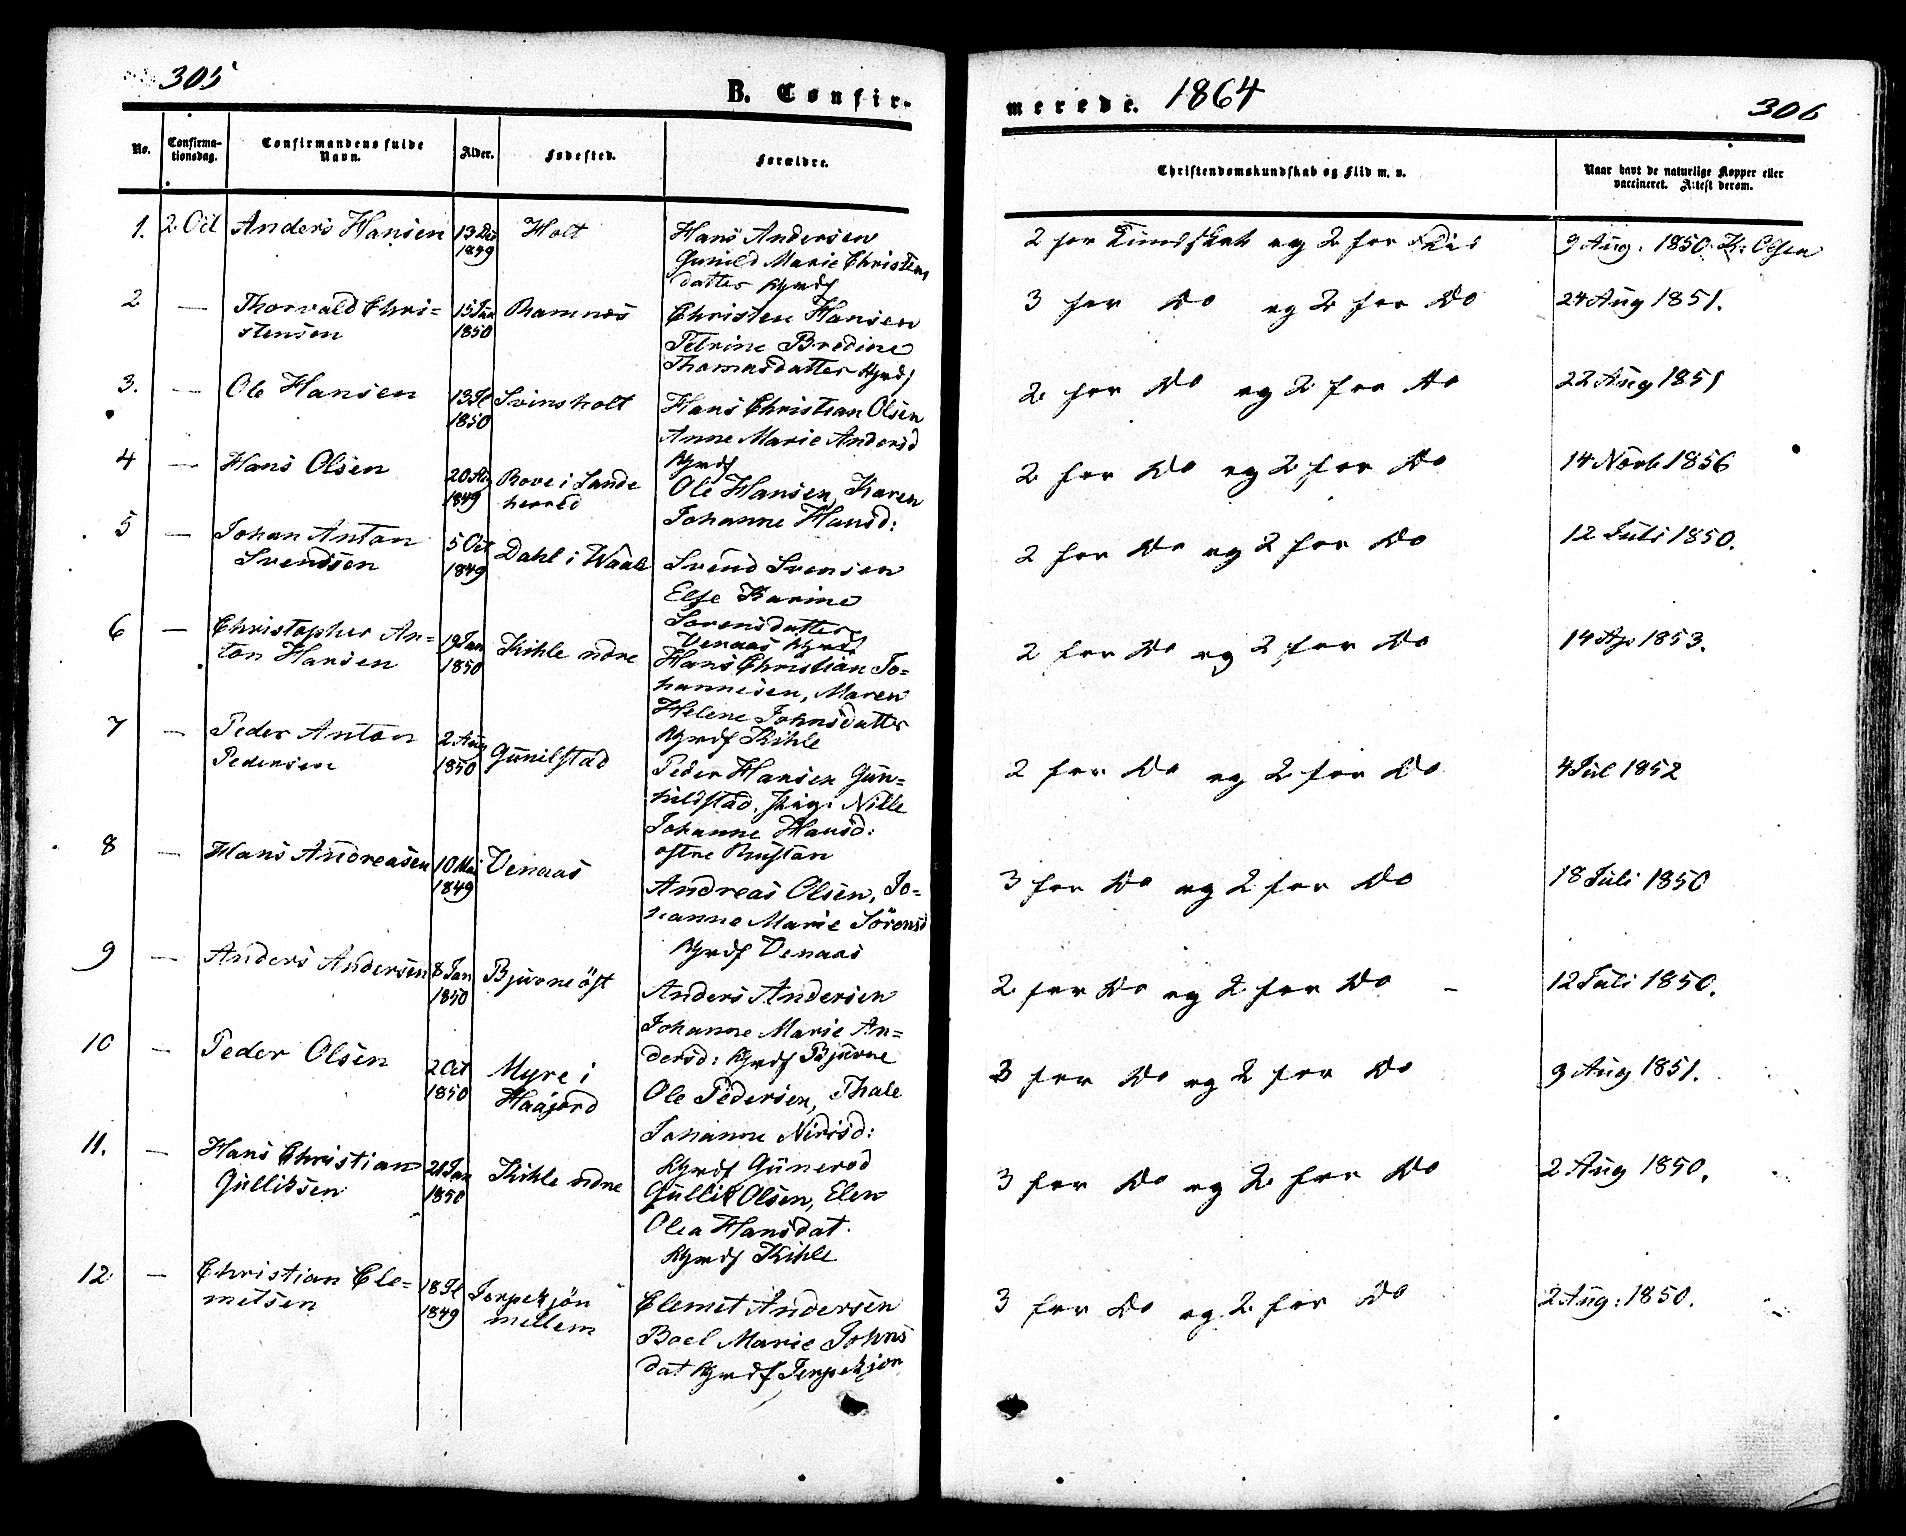 305
B. Confir-
No.
Confirma-
tionsdag.
Confirmandens fulde
Navn.
Alder.
Fødested.
Forældre.
1. 2. Oct Anders Hansen 13 Dec 1849 Holt
Hans Andersen
Gunild Marie Christens
datter
2 — Thorvald Chri-
stensen 15 Jan 1850 Ramnes
Christen Hansen
Petrine Bredine
Thomasdatter
3. — Ole Hansen 13 Jl 1850 Svinsholt
Hans Christian Olsen
Anne Marie Andersd
4 — Hans Olsen 1849 Bove i Sande
herred
Ole Hansen, Karen
Johanne Hansd:
5 — Johan Anton
Svendsen 5 Oct 1849 Dahl i Waale
Svend Svensen
Else Karine
Sorensdatter
Venaas
6 — Christopher An-
ton Hansen 19 Jan 1850 Kihle ndre
Hans Christian Jo-
hannesen, Maren
Helene Johnsdatter
Kihle
7 — Peder Anton
Pedersen 2 Aug 1850 Gunilstad
Peder Hansen Gun-
hildstad, Nille
Johanne Hansd:
ostre Rustan
8 — Hans Andreasen 10 Mai 1849 Venaas
Andreas Olsen, Jo-
hanne Marie Sörensd
Venaas
9 — Anders Andersen 8 Jan 1850 Bjurne öst
Anders Andersen
Johanne Marie An-
dersd: Bjurne
10 — Peder Olsen 2 Oct 1850 Myre i
Haajord
Ole Pedersen, Thale
Johanne
Gunerod
11. — Hans Christian
Gulliksen 21 Jan 1850 Kihle ndre
Gullik Olsen, Elen
Olea Hansdat.
Kihle
12. — Christian Cle-
metsen 18 Jl 1849 Jerpekjön
mellem
Clemet Andersen
Boel Marie Johns
dat Jerpekjon
merede. 1864
306
Christendomskundskab og Flid m. v.
Naar havt de naturlige Kopper eller
vaccineret. Attest derom.
2 for Kundskab og 2 for Flid 9 Aug: 1850. K: Olsen
3 for Do og 2 for Do 24 Aug 1851.
2 for Do og 2 for Do 22 Aug 1851
2 for Do og 2 for Do 14 Novb 1856
2 for Do og 2 for Do 12 Juli 1850.
2 for Do og 2 for Do 14 Ap 1853.
2 for Do og 2 for Do 4 Jul 1852
3 for Do og 2 for Do 18 Juli 1850
2 for Do og 2 for Do — 12 Juli 1850.
3 for Do og 2 for Do 9 Aug 1851.
3 for Do og 2 for Do 2 Aug 1850.
3 for Do og 2 for Do 2 Aug: 1850.